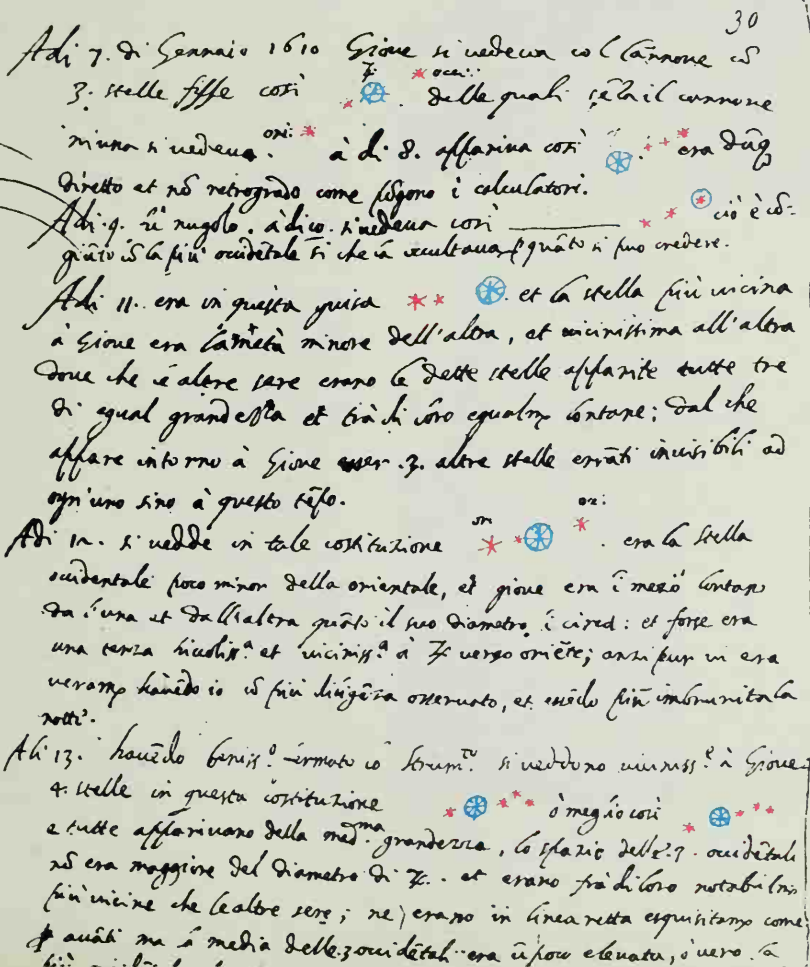 30
Adi 7. di Gennaio 1610 Giove si vedeva col Cannone cō
3. stelle fisse così ♃ occi: . delle quali sēza il cannone
niuna si vedeva. ori: à dì 8. appariva così . era dūq
diretto et nō retrogrado come pōgono i calculatori.
Adi 9. fù nugolo. à dì 10. si vedeva così ciò è cō-
giūto cō la più occidētale sì che la occultava p quāto si può credere.
Adi 11. era in questa guisa . et la stella più vicina
à Giove era la metà minore dell'altra, et vicinissima all'altra
dove che le altre sere erano le dette stelle apparite tutte tre
di egual grandezza et trà di loro egualmē lontane; dal che
appare intorno à Giove esser .3. altre stelle errāti invisibili ad
ogn'uno sino à questo tēpo.
Adi 12. si vedde in tale costituzione ori occi: . era la stella
occidentale poco minor della orientale, et giove era ī mezō lontan
da l'una et dall'altra quāto il suo diametro ī circa: et forse era
una terza piccoliss.ª et viciniss.ª à ♃ verso oriēte; anzi pur vi era
veramē havēdo io cō più diligēza osservato, et essēdo più imbrunita la
notte.
Adi 13. havēdo beniss.º fermato lo strum.to si veddono viciniss.e à Giove
4. stelle in questa costituzione ò meglio così
e tutte apparivano della med.ma grandezza, lo spazio delle .3. occidētali
nō era maggiore del diametro di ♃. et erano frà di loro notabilmē
più vicine che le altre sere; ne erano in linea retta esquisitamē come
avāti ma la media delle .3. occidētali era ū poco elevata, ò vero la